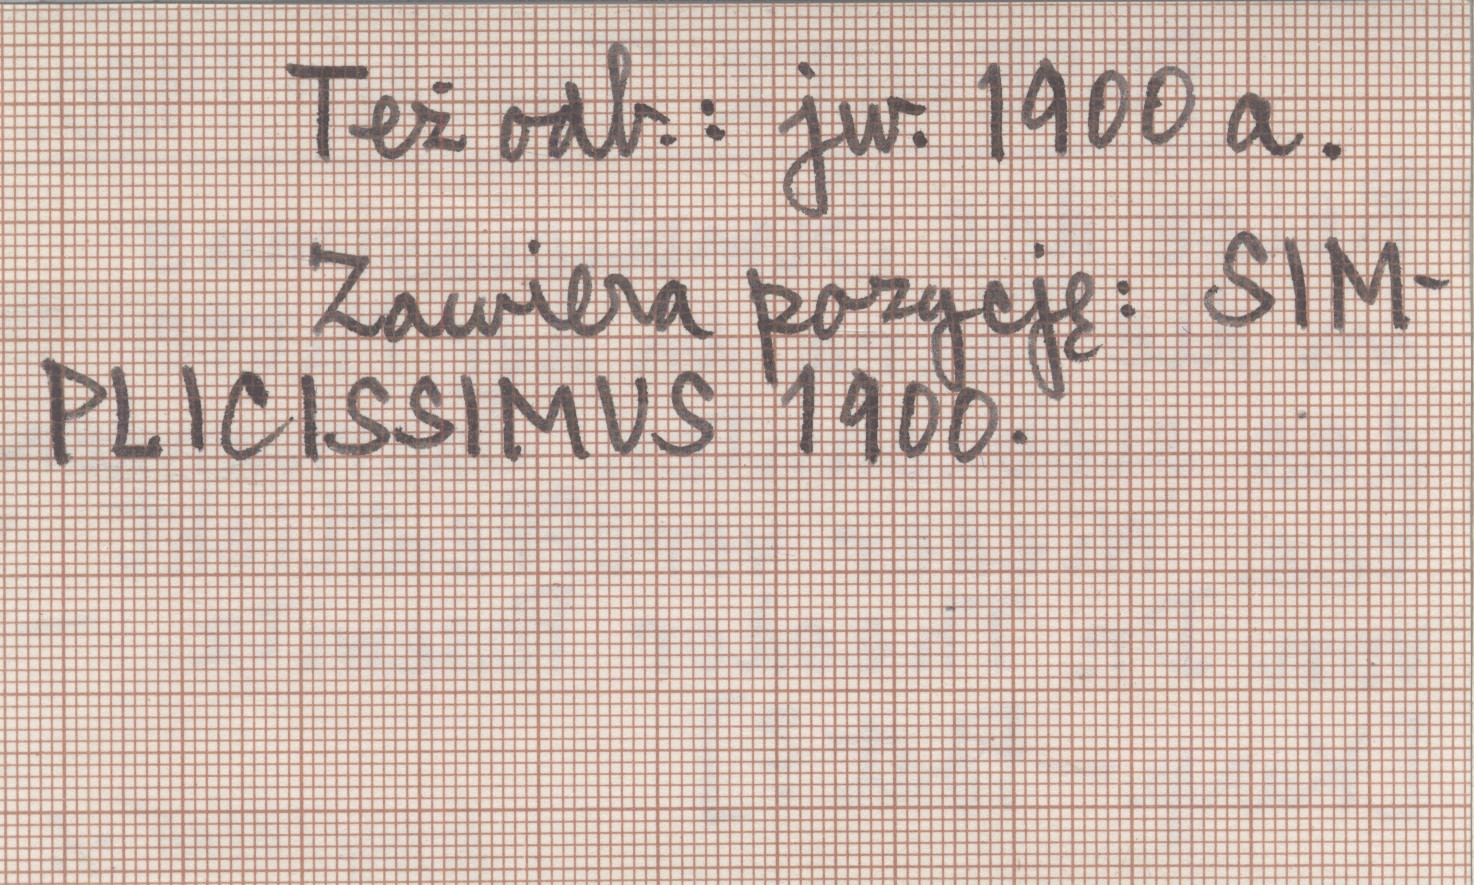 Też odb.: jw. 1900 a.
Zawiera pozycję: SIM-
PLICISSIMUS 1900.